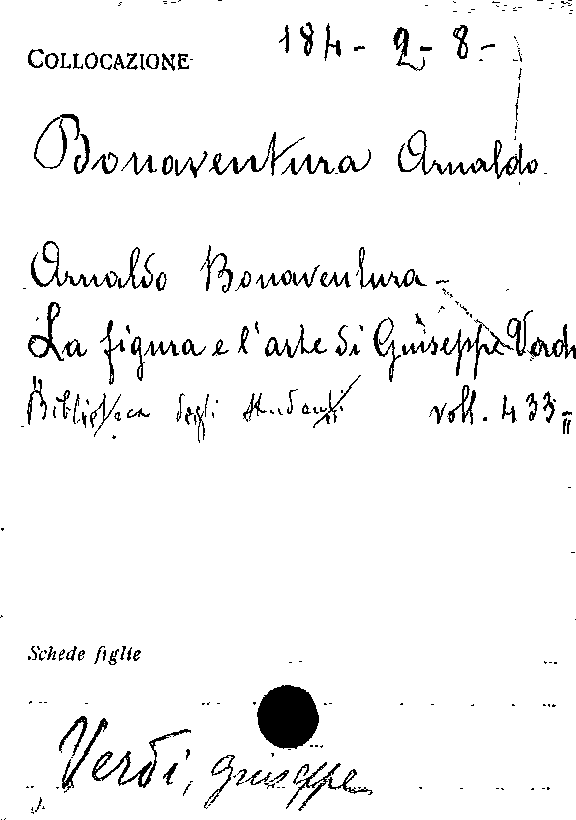 COLLOCAZIONE 184 - 2 - 8 -
Bonaventura Arnaldo
Arnaldo Bonaventura -
La figura e l'arte di Giuseppe Verdi
"Biblioteca degli studenti voll. 433 "
Schede figlie
Verdi, Giuseppe